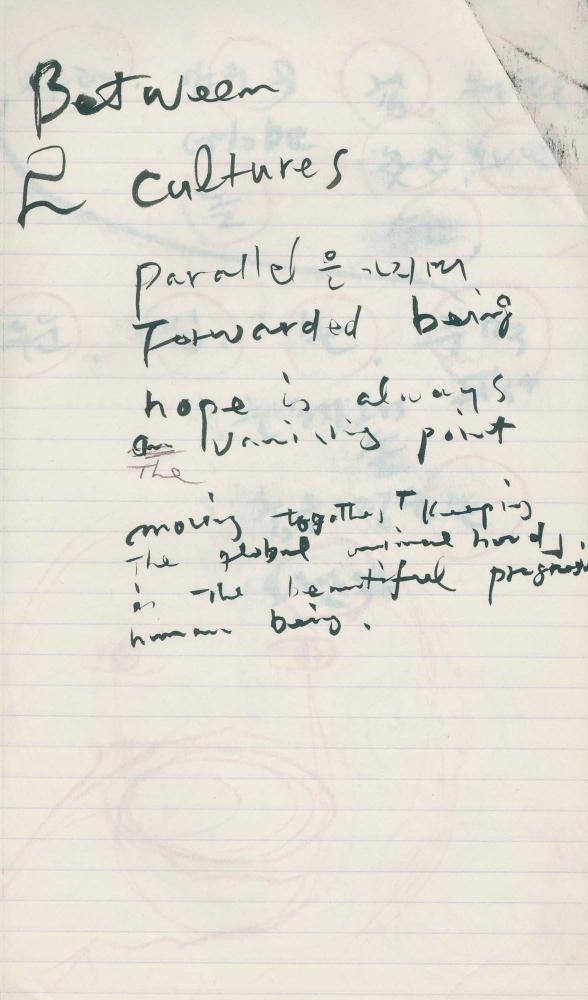 Between
2 cultures
parallel 은
Forwarded being
hope is always
a vanishing point
The
moving together, keeping
The global
is the beautiful
human being.